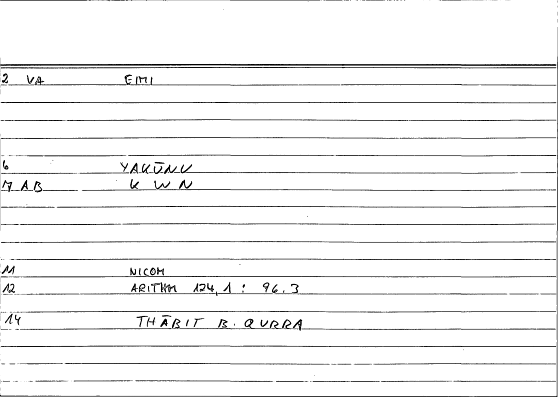 2 VA EIMI
6 YAKŪNU
7 AB K W N
11 NICOM
12 ARITHM 124,1 : 96.3
14 THĀBIT B. QURRA